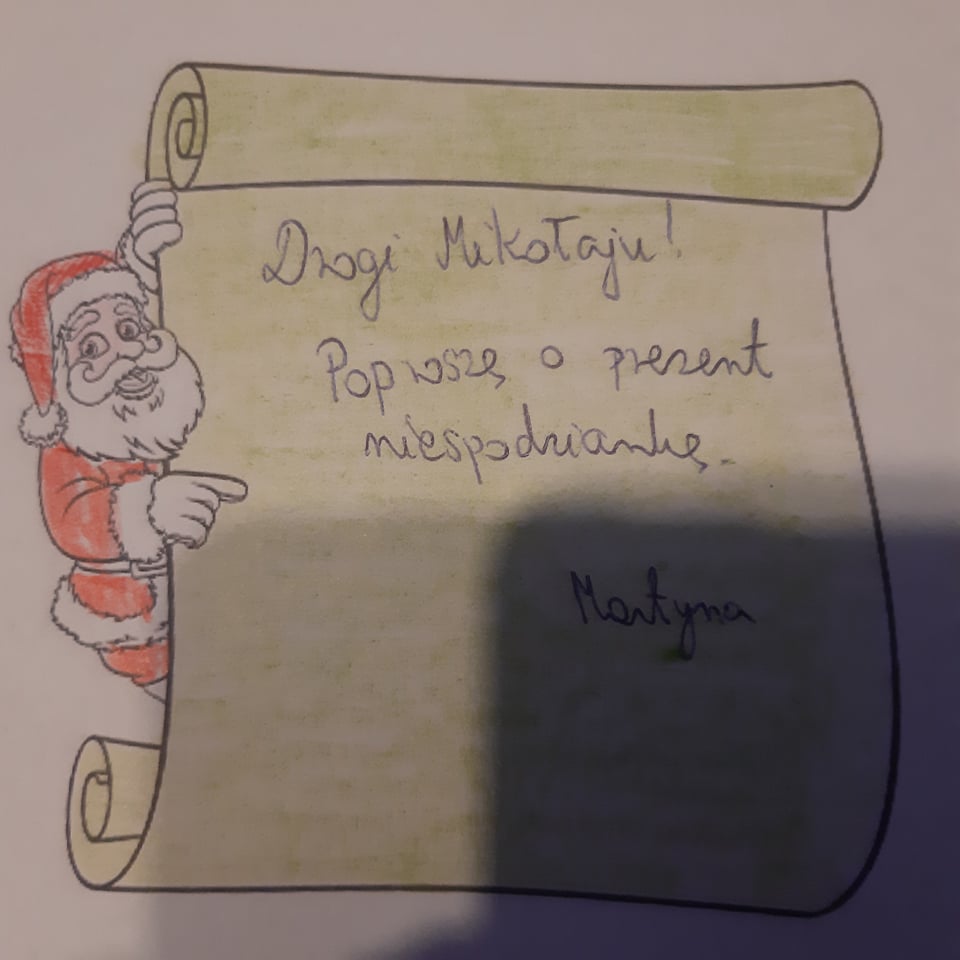 Drogi Mikołaju!
Poproszę o prezent
niespodziankę.
Martyna